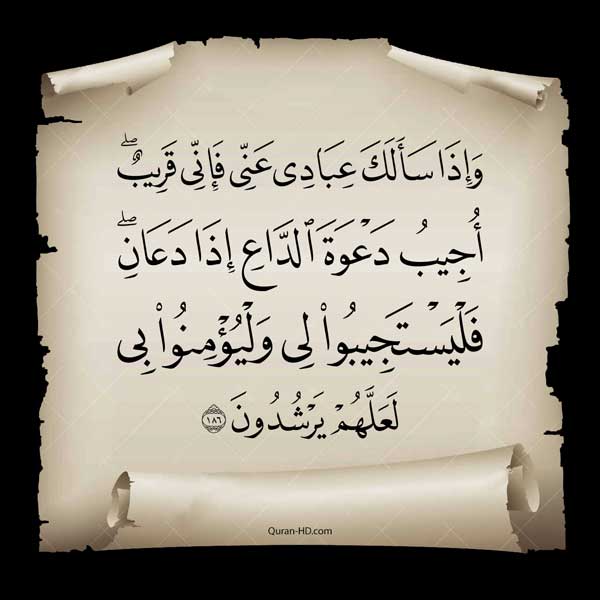 وَإِذَا سَأَلَكَ عِبَادِى عَنِّى فَإِنِّى قَرِيبٌۖ
أُجِيبُ دَعْوَةَ ٱلدَّاعِ إِذَا دَعَانِۖ
فَلْيَسْتَجِيبُوا۟ لِى وَلْيُؤْمِنُوا۟ بِى
لَعَلَّهُمْ يَرْشُدُونَ ١٨٦
Quran-HD.com